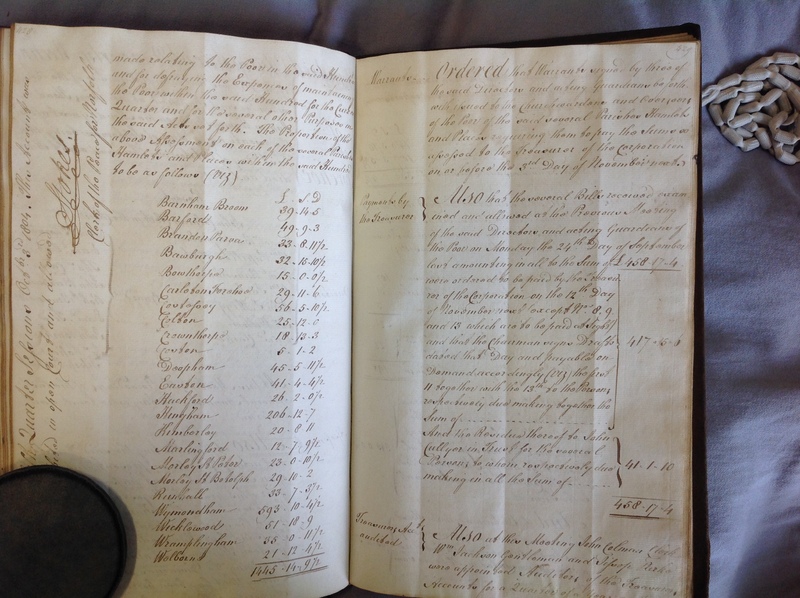 made relating to the Poor in the said Hundred
and for defraying the Expences of maintaining
the Poor within the said Hundred for the Current
Quarter and for the several other Purposes in
the said Act set forth. The Proportion of the
above Assessment on each of the several Parishes
Hamlets and Places within the said Hundred
to be as follows (Vizt)
£ S D
Barnham Broom 39-14-5
Barford 49-9-3
Brandon Parva 33-8-11½
Bawburgh 32-15-10½
Bowthorpe 15-0-0½
Carleton Forehoe 29-11-6
Costessey 56-5-10½
Colton 25-12-0
Crownthorpe 18-13-3
Coston 5-1-2
Deopham 45-5-11½
Easton 41-4-4½
Hackford 26-2-0½
Hingham 206-12-7
Kimberley 20-8-11
Marlingford 12-7-9½
Morley St Peter 23-0-10½
Morley St Botolph 29-10-2
Runhall 33-7-3½
Wymondham 593-10-4½
Wicklewood 51-18-9
Wramplingham 35-0-11½
Welborne 21-12-4½
1445-14-9½
Quarter Sessions Octr 3d 1804. This Account was
in open Court and allowed
Stokes
Clerk of the Peace for Norfolk
429
Warrants
Ordered that Warrants signed by three of
the said Directors and acting Guardians be forth
with issued to the Churchwardens and Overseers
of the Poor of the said several Parishes Hamlets
and Places requiring them to pay the Sums so
assessed to the Treasurer of the Corporation
on or before the 3rd Day of November next
Payments by
the Treasurer
Also that the several Bills received exam
ined and allowed at the Previous Meeting
of the said Directors and acting Guardians of
the Poor on Monday the 24th Day of September
last amounting in all to the Sum of £458-17-4
were ordered to be paid by the Treasu
rer of the Corporation on the 12th Day
of November next except No 8. 9
and 13 which are to be paid
and that the Chairman signs Drafts
dated that Day and payable on
Demand accordingly (Vizt) the first
11 together with the 13th to the Persons
respectively due making together the
Sum of
417-15-6
And the Residue thereof to John
Cullyer in Trust for the several
Persons to whom respectively due
making in all the Sum of
41-1-10
458-17-4
Treasurers Acct
audited
Also at this Meeting John Coleman
Wm Jackson Gentleman and Jessop
were appointed Auditors of the Treasurers
Accounts for a Quarter of a